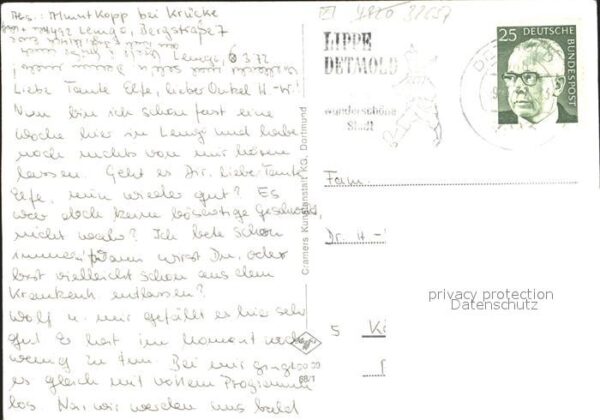 Abs.: Almut Kopp bei Krücke
4920 Lemgo, Bergstraße 7
Lemgo, 6 3 72
Liebe Tante Elfe, lieber Onkel H-W!
Nun bin ich schon fast eine
Woche hier in Lemgo und habe
noch nichts von mir hören
lassen. Geht es Dir, liebe Tante
Elfe, nun wieder gut? Es
war doch keine bösartige Geschwulst,
nicht wahr? Ich bete schon
immer. Wann wirst Du, oder
bist vielleicht schon aus dem
Krankenh. entlassen?
Wolf u. mir gefällt es hier sehr
gut. Er hat im Moment noch
wenig zu tun. Bei mir ging
es gleich mit vollem Programm
los. Na, wir werden uns bald
Cramers Kunstanstalt KG, Dortmund
68/1
LIPPE
DETMOLD
wunderschöne
Stadt
25 DEUTSCHE
BUNDESPOST
Fam.
Dr. H-
5
privacy protection
Datenschutz